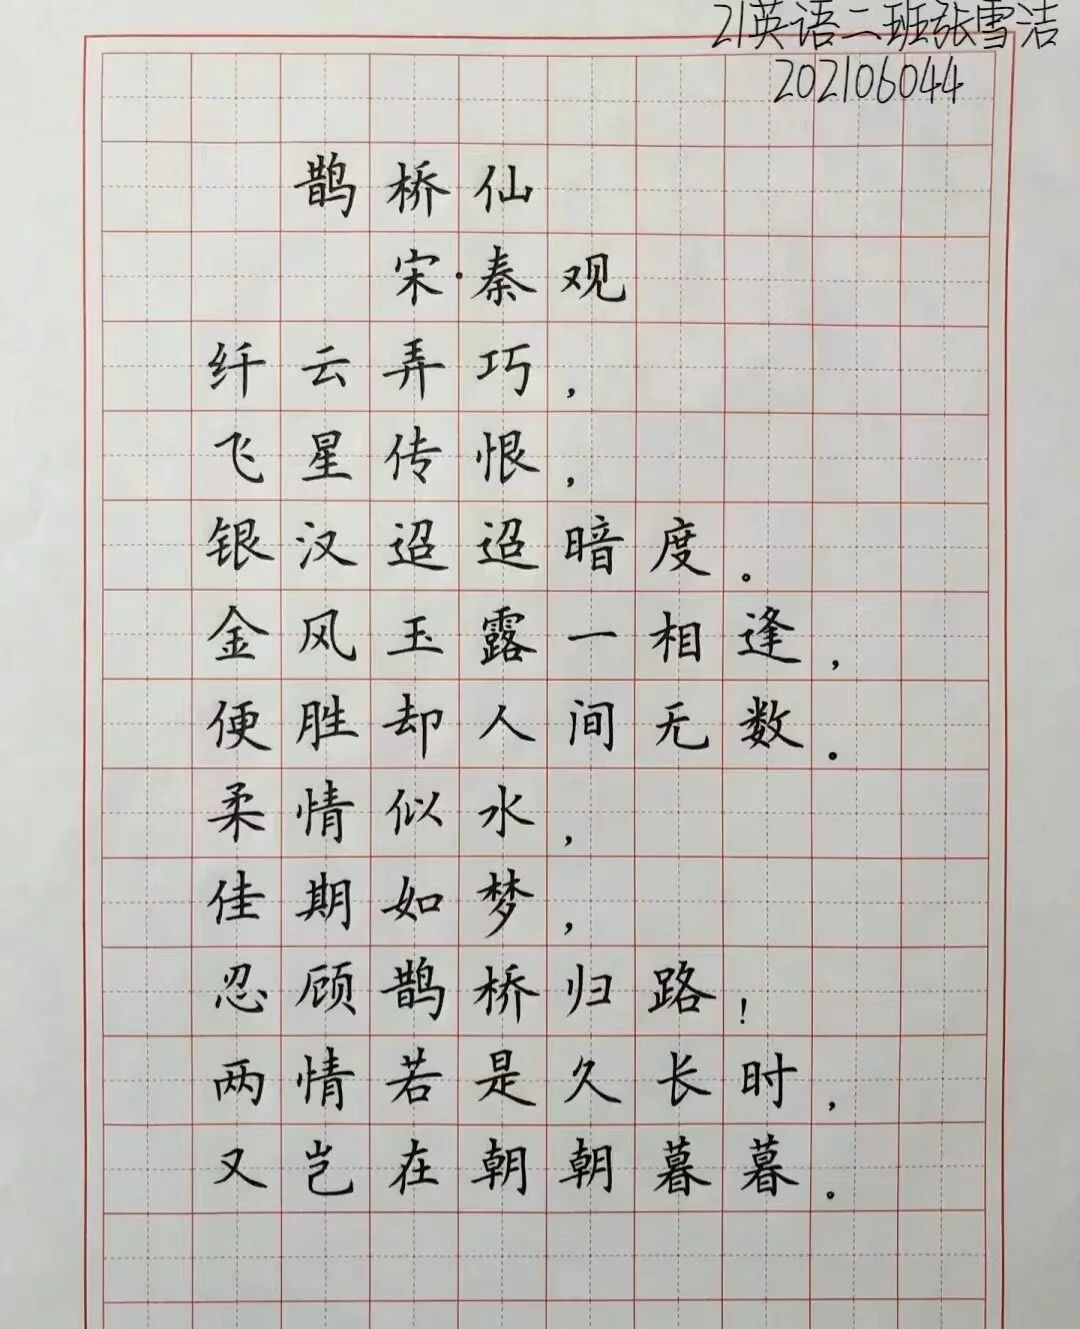 21英语二班张雪洁
202106044
鹊桥仙
宋·秦观
纤云弄巧，
飞星传恨，
银汉迢迢暗度。
金风玉露一相逢，
便胜却人间无数。
柔情似水，
佳期如梦，
忍顾鹊桥归路！
两情若是久长时，
又岂在朝朝暮暮。